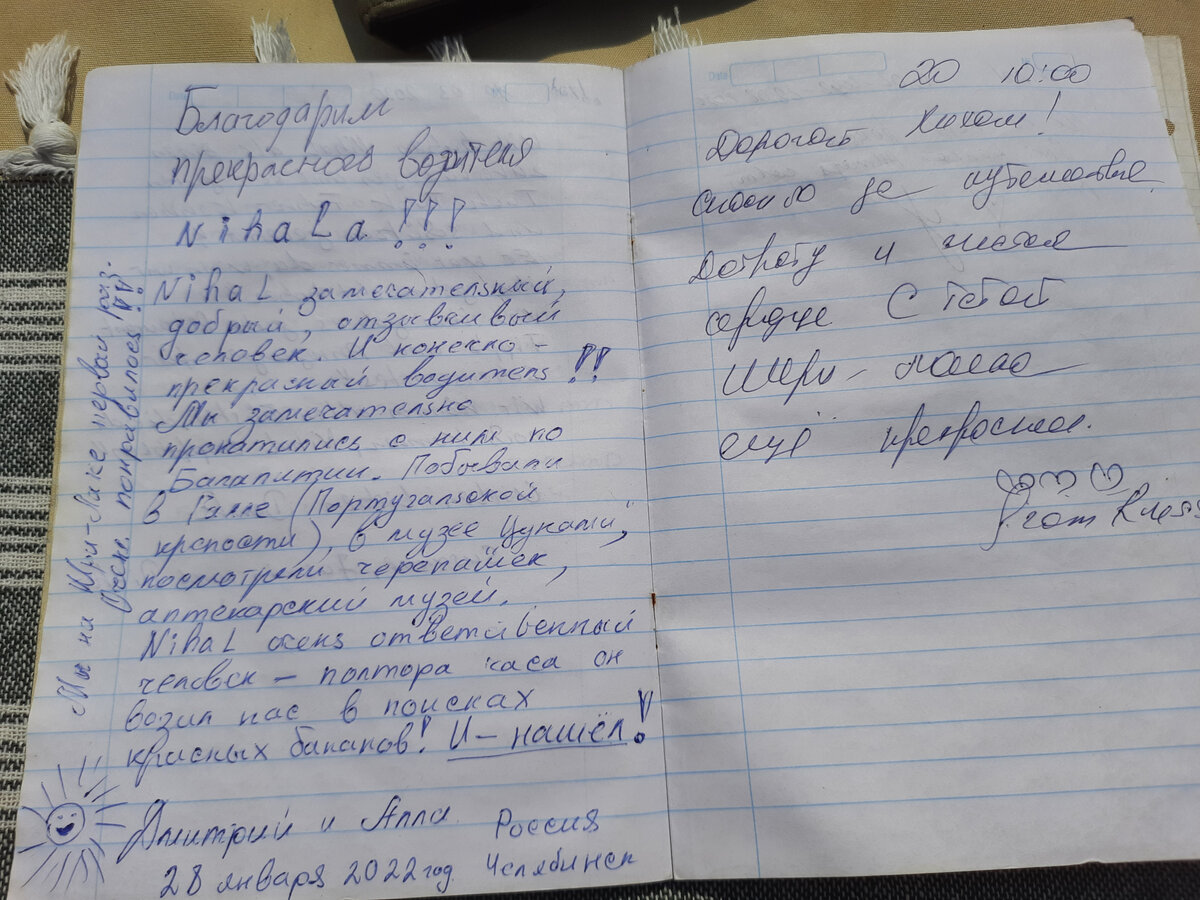 Благодарим
прекрасного водителя
NihaLa!!!
NihaL замечательный,
добрый, отзывчивый
человек. И конечно -
прекрасный водитель!!
Мы замечательно
прокатились с ним по
Балапитии. Побывали
в Галле (Португальской
крепости), в музее Цунами,
посмотрели черепашек,
аптекарский музей.
NihaL очень ответственный
человек – полтора часа он
возил нас в поисках
красных бананов! И – нашёл!
Дмитрий и Алла. Россия
28 января 2022 год. Челябинск
Мы на Шри-Ланке первый раз.
Очень понравилось!!!
20 10:00
Дорогой
Спасибо за путешествие
Доброту и
сердце С тобой
Шри-Ланка
ещё прекрасней.
from